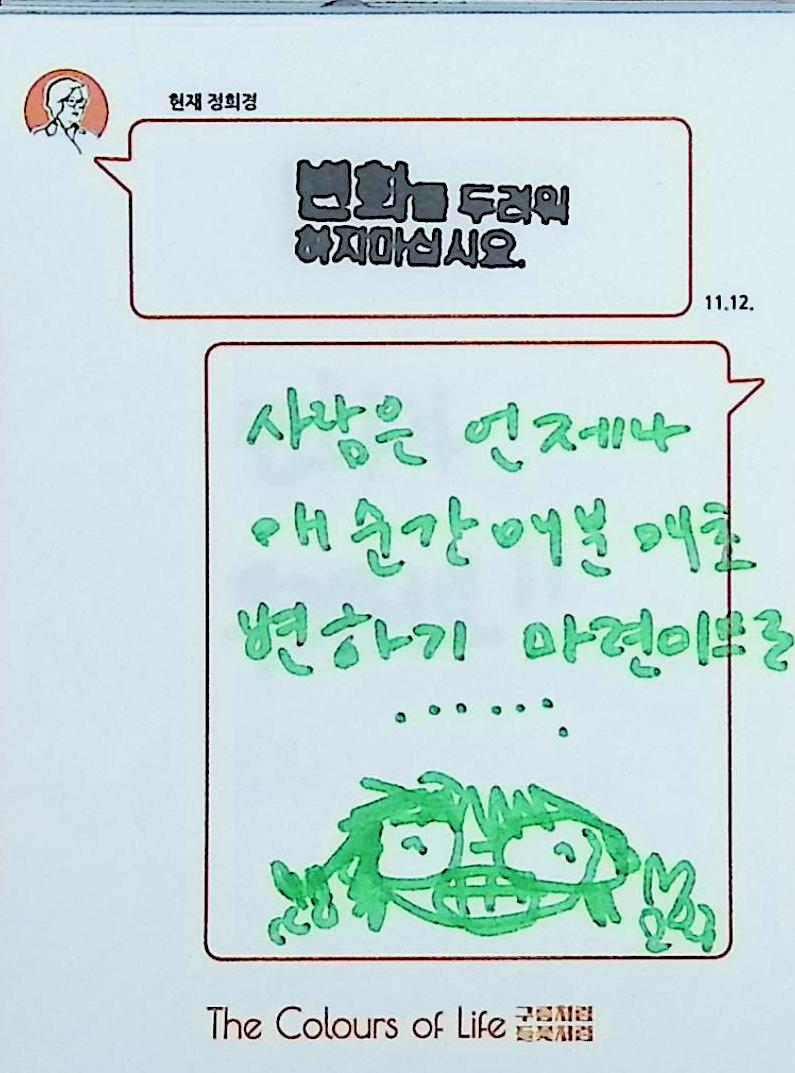 현재 정희경
변화를 두려워
하지마십시요.
11.12.
사람은 언제나
매 순간 매분 매초
변하기 마련이므로
.......
The Colours of Life 구름처럼
들꽃처럼